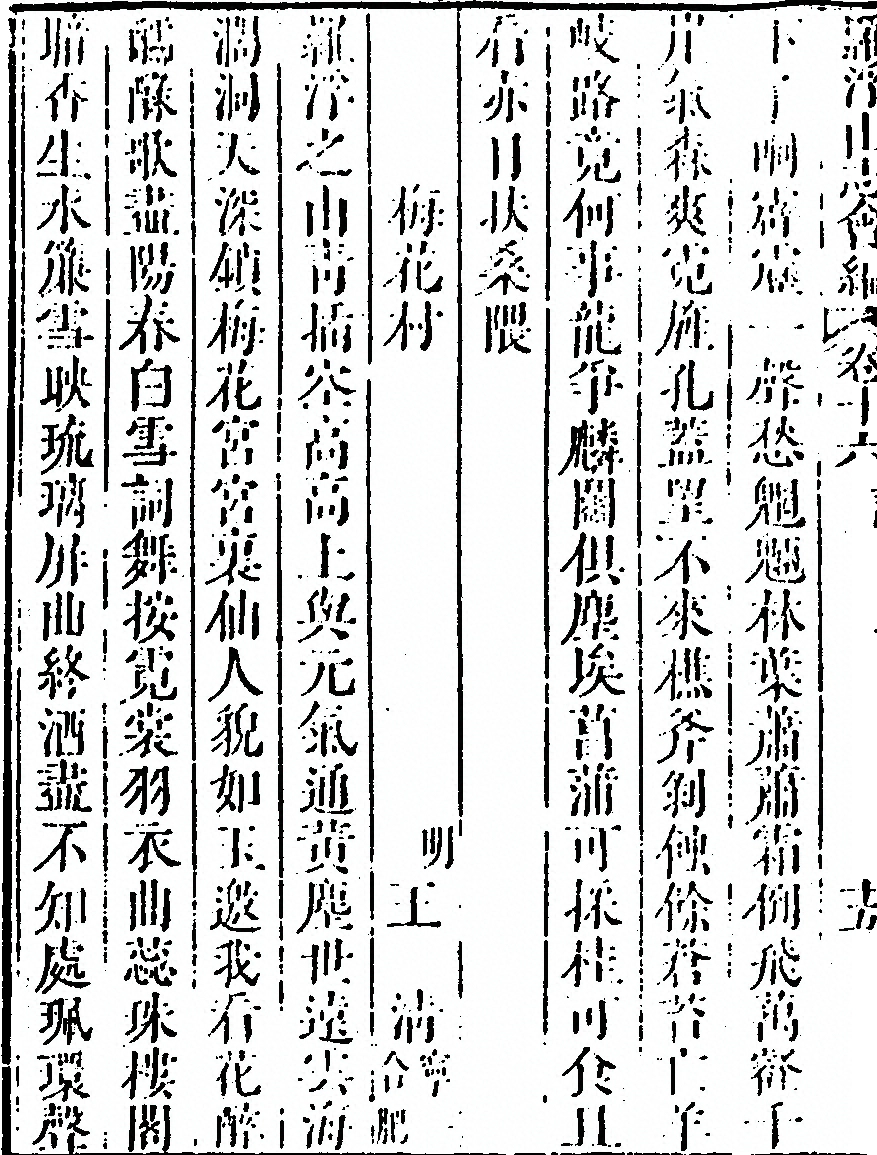 羅浮山志會編 卷十六
聲愁魍魎林葉蕭蕭霜倒飛萬壑千
岸氣森爽旌孔蓋不來樵斧剝蝕餘蒼苔亡羊
岐路竟何事龍爭麟鬬俱塵埃菖蒲可採桂可食且
看亦日扶桑隈
梅花村 明 王 寧 合肥
羅浮之山青插空高高上與元氣通黃塵世遠雲海
濶洞天深鎖梅花宮宮裏仙人貌如玉邀我看花醉
醽醁歌盡陽春白雪詞舞按霓裳羽衣曲蕊珠樓閣
暗香生水簾雪映琉璃屏曲終酒盡不知處珮環聲